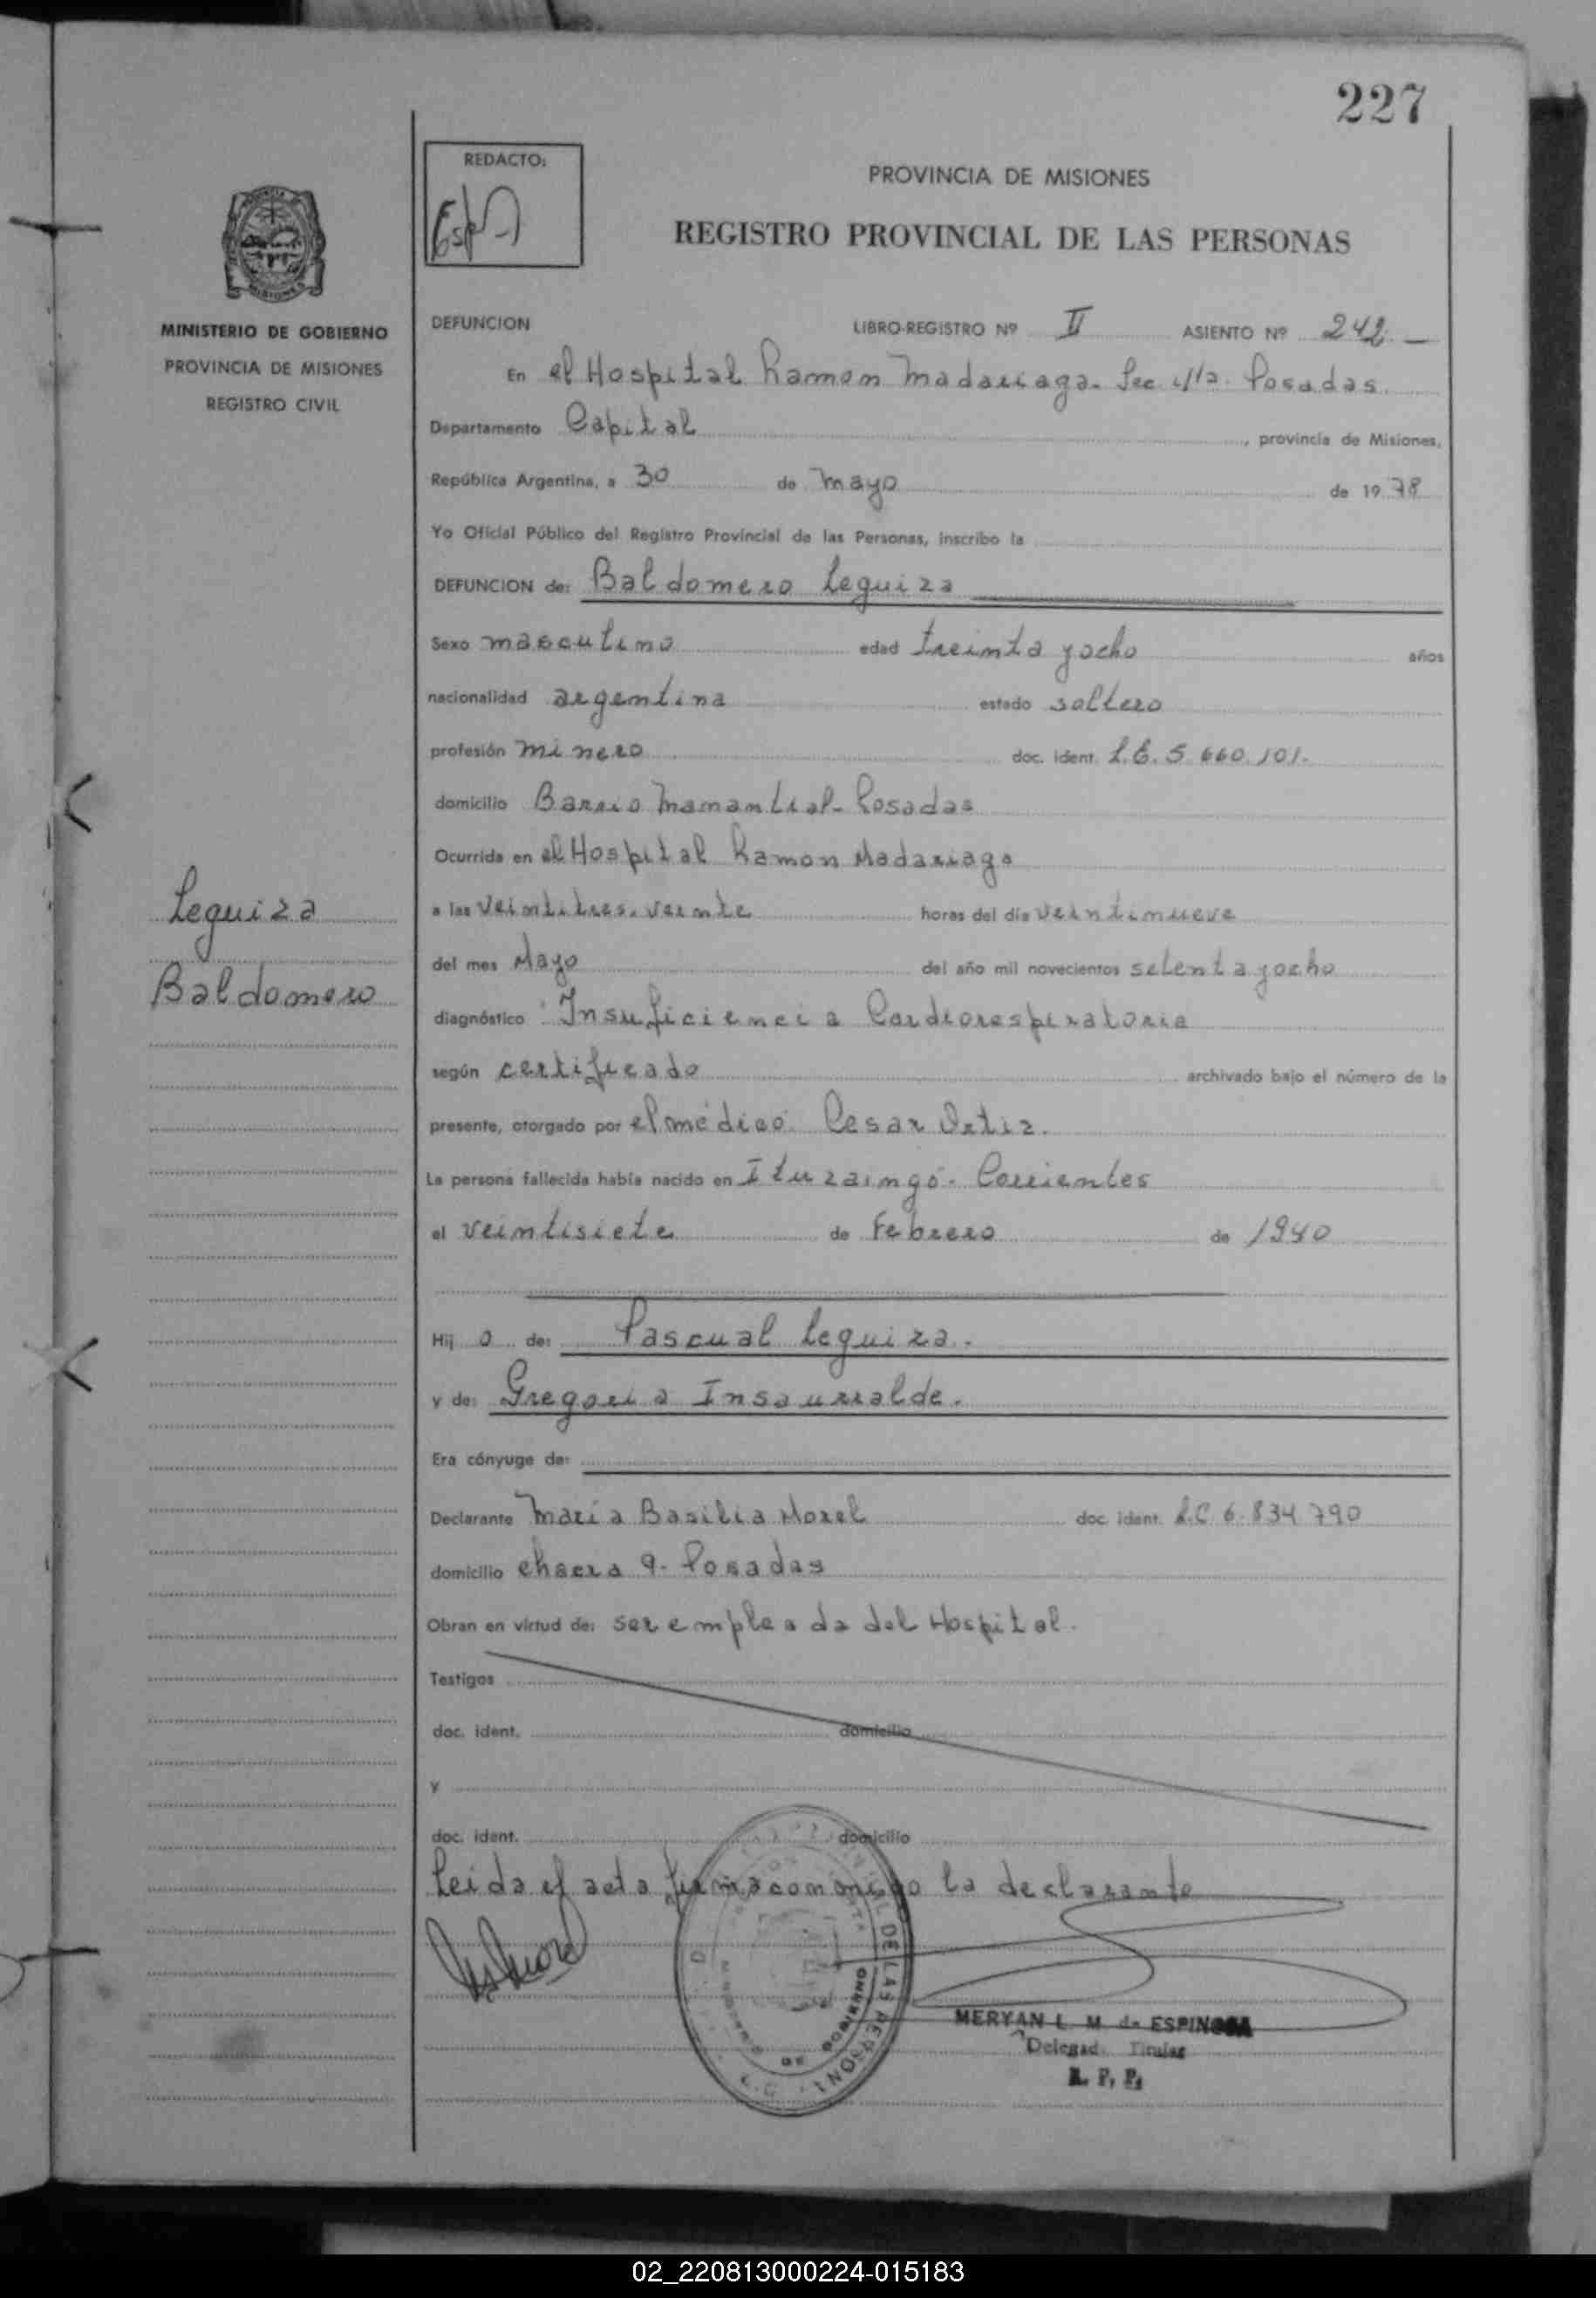 227
REDACTO:
PROVINCIA DE MISIONES
REGISTRO PROVINCIAL DE LAS PERSONAS
MINISTERIO DE GOBIERNO
PROVINCIA DE MISIONES
REGISTRO CIVIL
DEFUNCION LIBRO-REGISTRO Nº II ASIENTO Nº 242.
En el Hospital Ramon Madariaga. Sec Posadas
Departamento Capital, provincia de Misiones,
República Argentina, a 30 de mayo de 1978
Yo Oficial Público del Registro Provincial de las Personas, inscribo la
DEFUNCION de: Baldomero Leguiza
Sexo masculino edad treinta y ocho años
nacionalidad argentina estado soltero
profesión minero doc. ident. L.E. 5.660.101.
domicilio Barrio Manantial - Posadas
Ocurrida en el Hospital Ramon Madariaga
Leguiza
Baldomero
a las veintitres. veinte horas del día veintinueve
del mes Mayo del año mil novecientos setenta y ocho
diagnóstico: Insuficiencia Cardiorespiratoria
según certificado archivado bajo el número de la
presente, otorgado por el médico Cesar Ortiz.
La persona fallecida había nacido en Ituzaingó - Corrientes
el veintisiete de Febrero de 1940
Hij o de: Pascual Leguiza.
y de: Gregoria Insaurralde.
Era cónyuge de:
Declarante Maria Basilia Morel doc. ident. L.C. 6.834.790
domicilio chacra 9. Posadas
Obran en virtud de: ser empleada del Hospital.
Testigos
doc. ident. domicilio
y
doc. ident. domicilio
Leida el acta firma conmigo la declarante
MERYAN L. M. de ESPINOSA
Delegad. Titular
R. P. P.
DE LAS PERSONAS
DE GOBIERNO
02_220813000224-015183